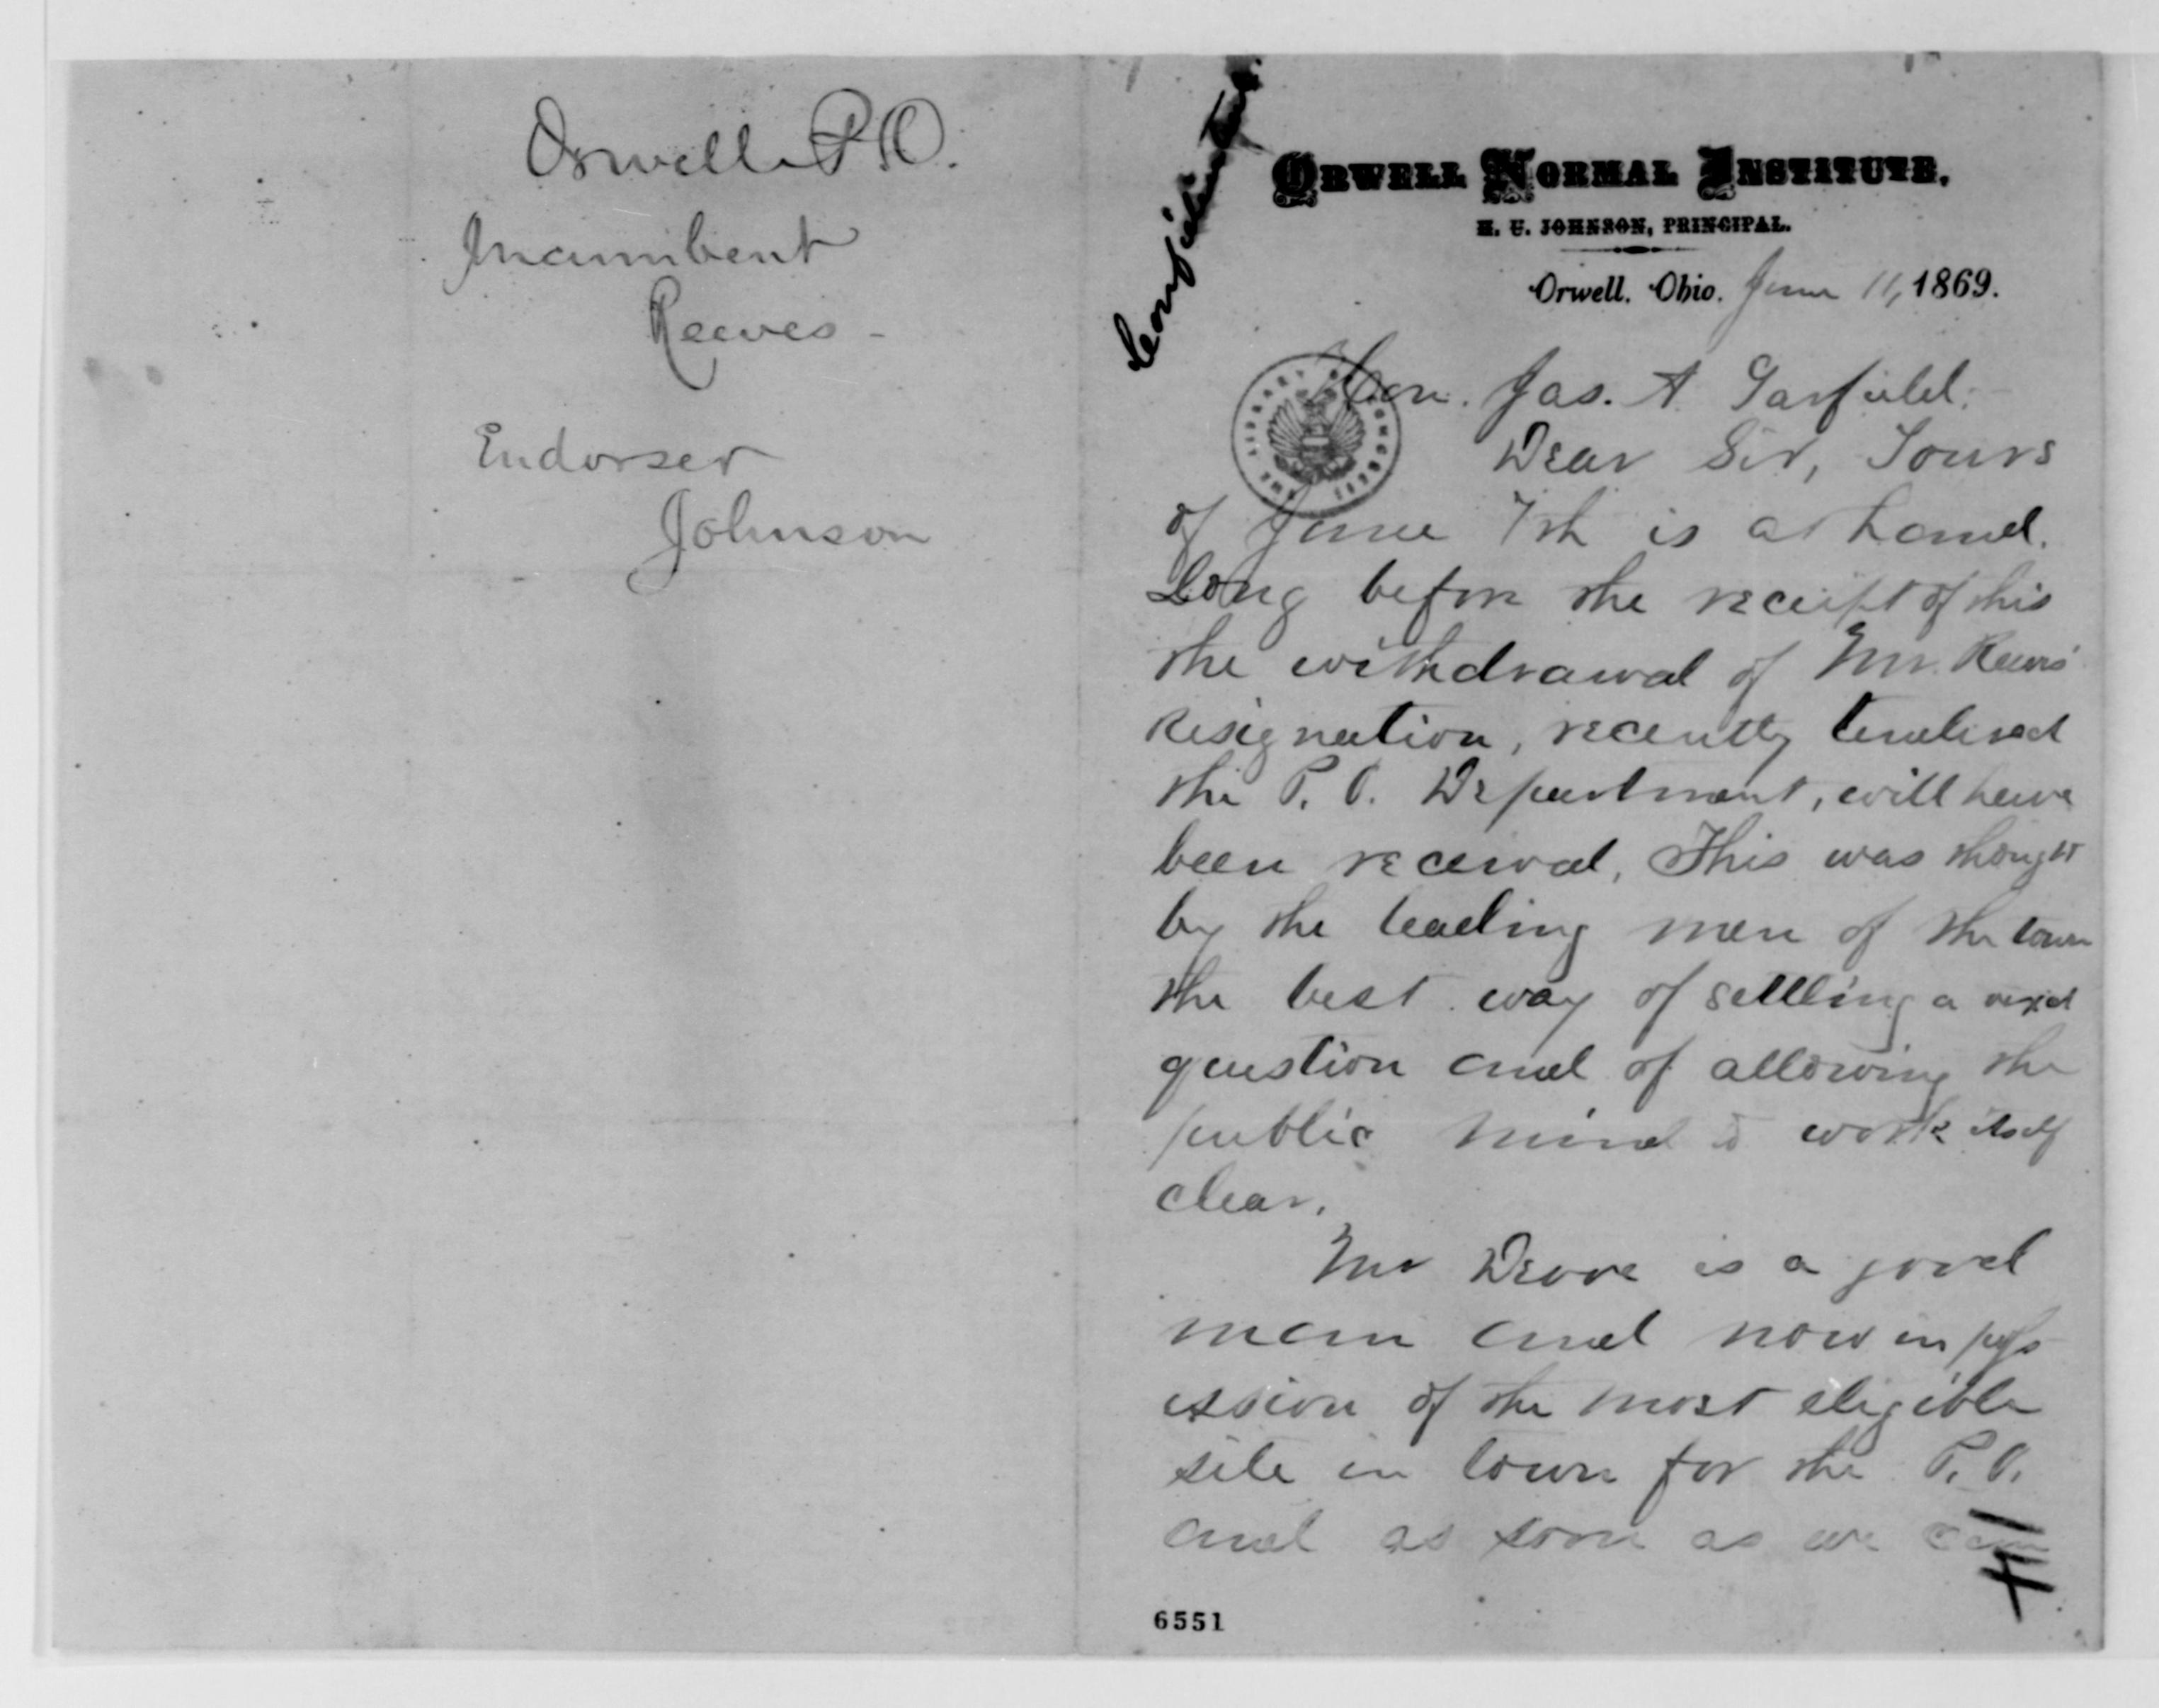 Orwell P.O.
Incumbent
Reeves -
Endorser
Johnson
ORWELL NORMAL INSTITUTE.
H. U. JOHNSON, PRINCIPAL.
Orwell, Ohio, June 11, 1869.
Hon. Jas. A Garfield.
THE LIBRARY OF CONGRESS
Dear Sir, Yours
of June 7th is at hand.
Long before the receipt of this
the withdrawal of Mr. Reeves'
resignation, recently tendered
the P. O. Department, will have
been received. This was thought
by the leading men of the town
the best way of settling a vexed
question and of allowing the
public mind to work itself
clear.
Mr is a good
man and now in poss
ession of the most eligible
site in town for the P. O.
and as soon as we can
6551